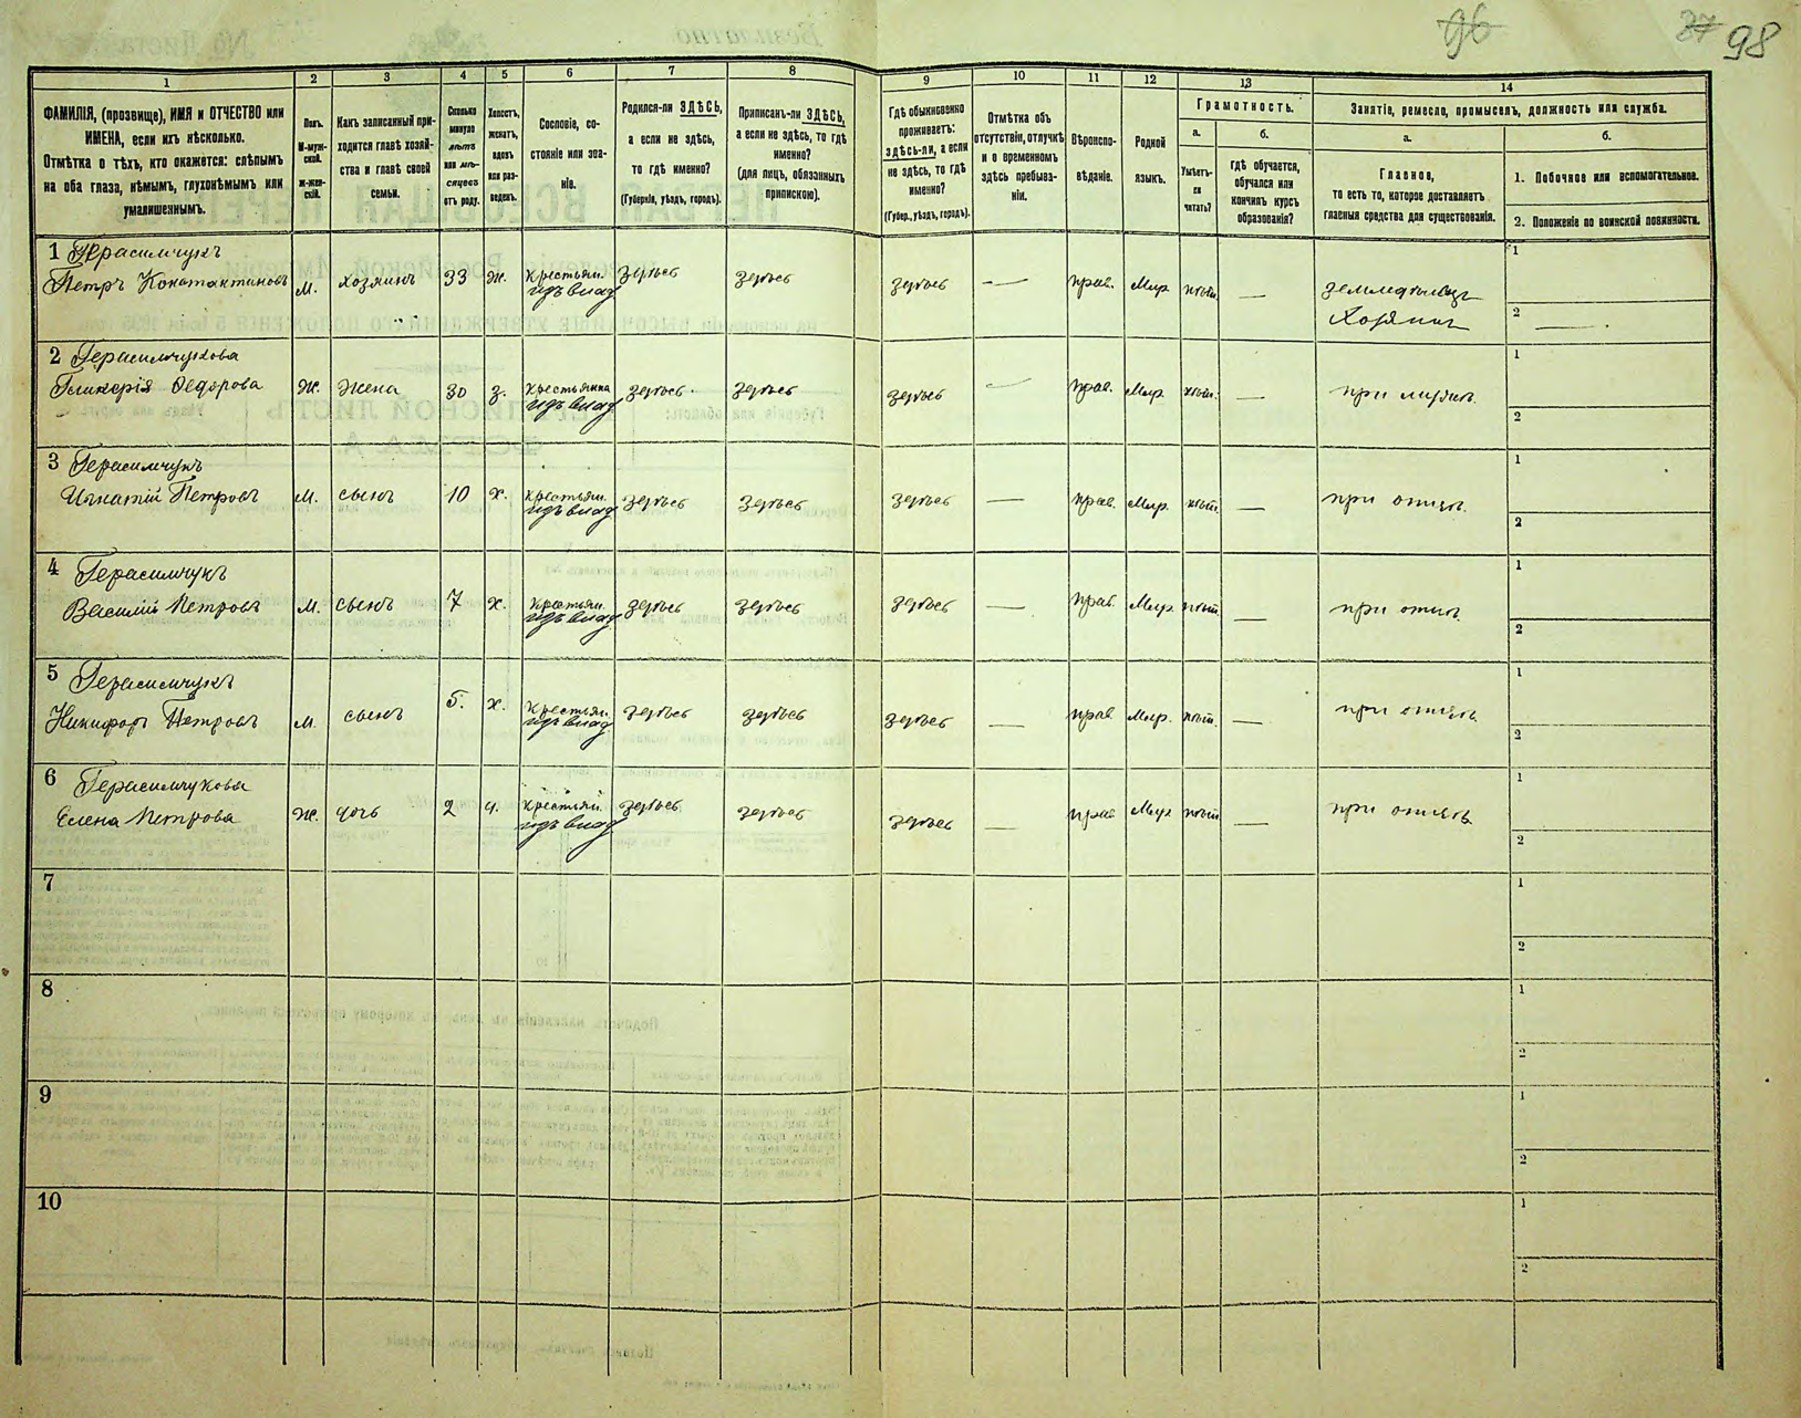 96 37 98
1 2 3 4 5 6 7 8 9 10 11 12 13 14
ФАМИЛІЯ, (прозвище), ИМЯ и ОТЧЕСТВО или
ИМЕНА, если ихъ нѣсколько.
Отмѣтка о тѣхъ, кто окажется: слѣпымъ
на оба глаза, нѣмымъ, глухонѣмымъ или
умалишеннымъ.
Полъ.
М-муж-
ской.
Ж-жен-
скій.
Какъ записанный при-
ходится главѣ хозяй-
ства и главѣ своей
семьи.
Сколько
минуло
лѣтъ
или мѣ-
сяцевъ
отъ роду.
Холостъ,
женатъ,
вдовъ
или раз-
веденъ.
Сословіе, со-
стояніе или зва-
ніе.
Родился-ли ЗДѢСЬ,
а если не здѣсь,
то гдѣ именно?
(Губернія, уѣздъ, городъ).
Приписанъ-ли ЗДѢСЬ,
а если не здѣсь, то гдѣ
именно?
(для лицъ, обязанныхъ
припискою).
Гдѣ обыкновенно
проживаетъ:
здѣсь-ли, а если
не здѣсь, то гдѣ
именно?
(Губер., уѣздъ, городъ).
Отмѣтка объ
отсутствіи, отлучкѣ
и о временномъ
здѣсь пребыва-
ніи.
Вѣроиспо-
вѣданіе.
Родной
языкъ.
Грамотность.
а.
Умѣетъ-
ли
читать?
б.
Гдѣ обучается,
обучался или
кончилъ курсъ
образованія?
Занятіе, ремесло, промыселъ, должность или служба.
а.
Главное,
то есть то, которое доставляетъ
главныя средства для существованія.
б.
1. Побочное или вспомогательное.
2. Положеніе по воинской повинности.
1 Герасимчукъ
Петръ Константиновъ М. хозяинъ 33 ж. Крестьян. здѣсь здѣсь здѣсь — прав. Мар. нѣт. — земледѣлецъ
Хозяинъ
1
2 —
2 Герасимчукова
Гликерія Федорова Ж. жена 30 з. Крестьянка здѣсь здѣсь здѣсь — прав. Мар. нѣт. — при мужѣ
1
2
3 Герасимчукъ
Игнатій Петровъ М. сынъ 10 х. Крестьян. здѣсь здѣсь здѣсь — прав. Мар. нѣт. — при отцѣ
1
2
4 Герасимчукъ
Василій Петровъ М. сынъ 7 х. Крестьян. здѣсь здѣсь здѣсь — прав. Мар. нѣт. — при отцѣ
1
2
5 Герасимчукъ
Никифоръ Петровъ М. сынъ 5. х. Крестьян. здѣсь здѣсь здѣсь — прав. Мар. нѣт. — при отцѣ
1
2
6 Герасимчукова
Елена Петрова Ж. дочь 2 д. Крестьян. здѣсь здѣсь здѣсь — прав. Мар. нѣт. — при отцѣ
1
2
7
1
2
8
1
2
9
1
2
10
1
2